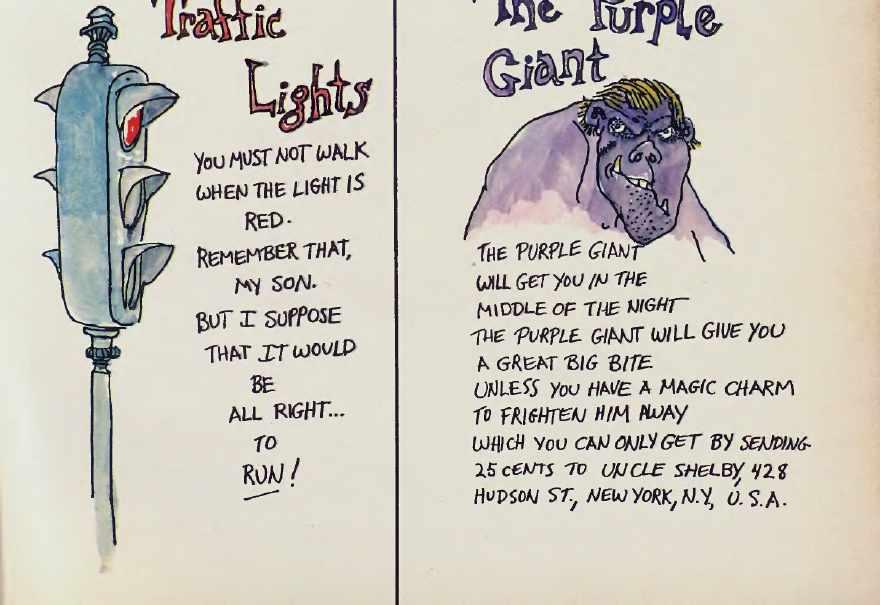 Traffic
Lights
YOU MUST NOT WALK
WHEN THE LIGHT IS
RED.
REMEMBER THAT,
MY SON.
BUT I SUPPOSE
THAT IT WOULD
BE
ALL RIGHT...
TO
RUN!
The Purple
Giant
THE PURPLE GIANT
WILL GET YOU IN THE
MIDDLE OF THE NIGHT
THE PURPLE GIANT WILL GIVE YOU
A GREAT BIG BITE
UNLESS YOU HAVE A MAGIC CHARM
TO FRIGHTEN HIM AWAY
WHICH YOU CAN ONLY GET BY SENDING
25 CENTS TO UNCLE SHELBY, 428
HUDSON ST., NEW YORK, N.Y., U.S.A.